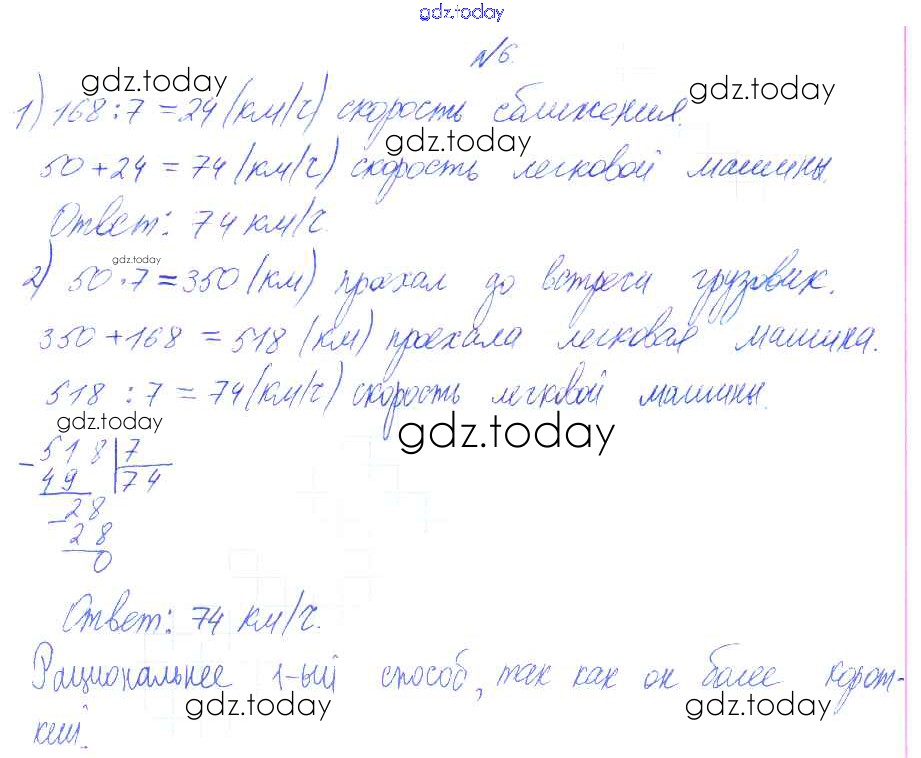 gdz.today
№6.
gdz.today gdz.today
1) 168 : 7 = 24 (км/ч) скорость сближения.
gdz.today
50 + 24 = 74 (км/ч) скорость легковой машины.
Ответ: 74 км/ч.
gdz.today
2) 50 · 7 = 350 (км) проехал до встречи грузовик.
350 + 168 = 518 (км) проехала легковая машина.
518 : 7 = 74 (км/ч) скорость легковой машины.
gdz.today gdz.today
- 518 | 7
49 74
- 28
28
0
Ответ: 74 км/ч.
Рациональнее 1-ый способ, так как он более корот-
gdz.today gdz.today
кий.